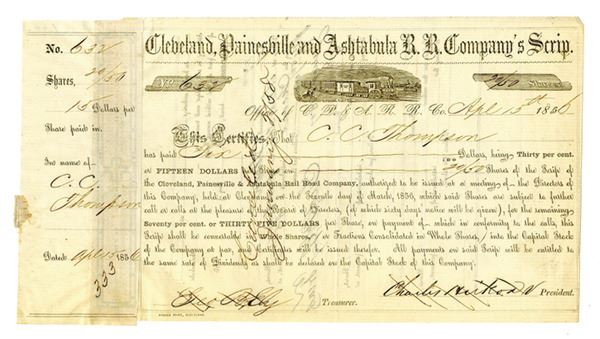 No. 632
Shares, 20/50
15 Dollars per
Share paid in.
In name of
C. C.
Thompson
Dated Apl 15 1856
333
Cleveland, Painesville and Ashtabula R. R. Company's Scrip.
No 632
20/50 Shares
Office of C. P. & A. R. R. Co. Apl 15th 1856
This Certifies, That C. C. Thompson
has paid Six Dollars, being Thirty per cent.
or FIFTEEN DOLLARS per Share on 20/50 Shares of the Scrip of the
Cleveland, Painesville & Ashtabula Rail Road Company, authorized to be issued at a meeting of the Directors of
this Company, held at Cleveland on the Seventh day of March, 1856, which said Shares are subject to further
call or calls at the pleasure of the Board of Directors, (of which sixty days notice will be given), for the remaining
Seventy per cent. or THIRTY-FIVE DOLLARS per Share, on payment of, which in conformity to the call, this
Scrip shall be convertible in Whole Shares, (or Fractions Consolidated in Whole Shares,) into the Capital Stock
of the Company at par, and Certificates will be issued therefor. All payments on said Scrip will be entitled to
the same rate of Dividends as shall be declared on the Capital Stock of this Company.
Treasurer.
President.